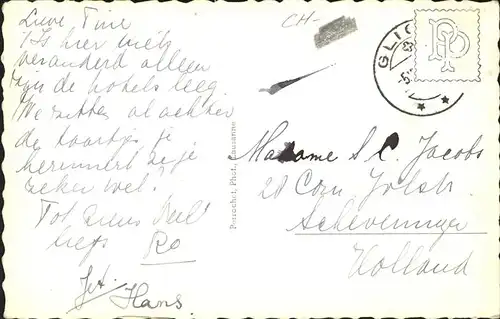 Lieve Tine
't Is hier niets
veranderd alleen
zijn de hotels leeg.
We zitten al achter
de kaartjes je
herinnert ze je
zeker wel?
Tot ziens Veel
liefs Ro
Jet. Hans.
CH-
GLION
Perrochet, Phot., Lausanne
Madame S. C. Jacobs
20 Corn Jolstr.
Scheveningen
Holland